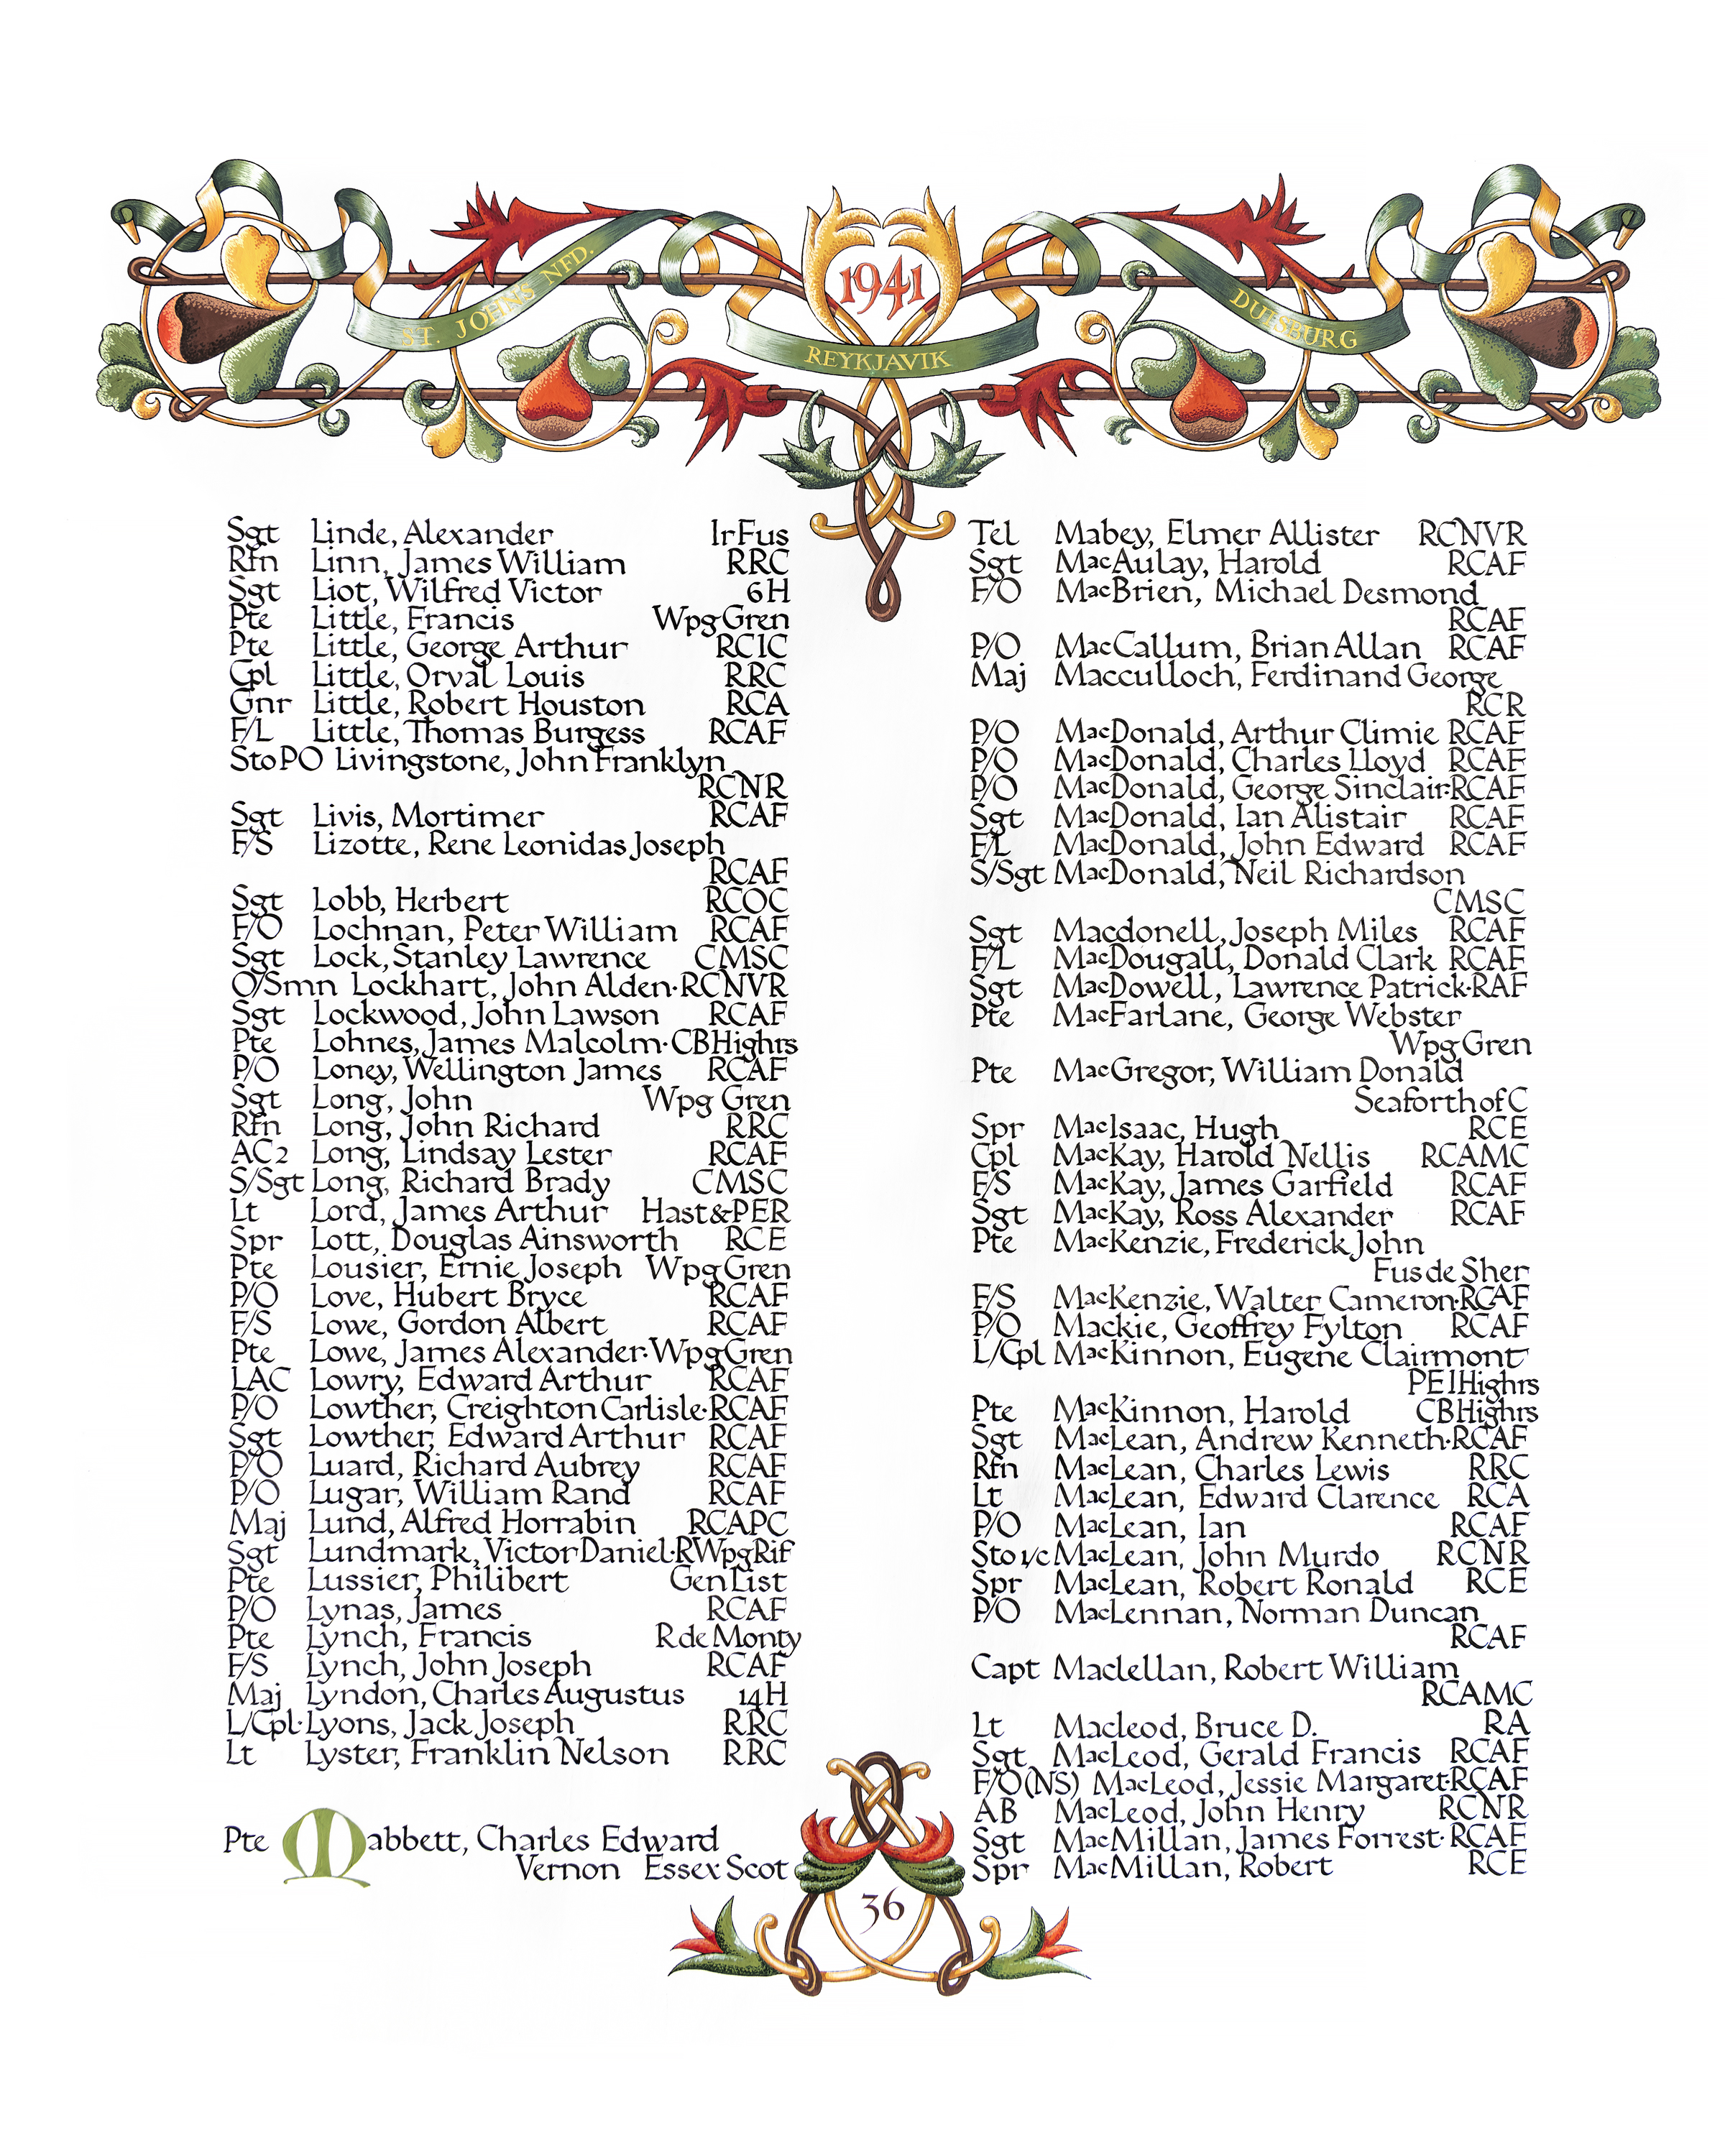 1941
ST. JOHN'S NFD.
REYKJAVIK
DUISBURG
Sgt Linde, Alexander IrFus
Rfn Linn, James William RRC
Sgt Liot, Wilfred Victor 6H
Pte Little, Francis Wpg Gren
Pte Little, George Arthur RCIC
Cpl Little, Orval Louis RRC
Gnr Little, Robert Houston RCA
F/L Little, Thomas Burgess RCAF
Sto PO Livingstone, John Franklyn
RCNR
Sgt Livis, Mortimer RCAF
F/S Lizotte, Rene Leonidas Joseph
RCAF
Sgt Lobb, Herbert RCOC
F/O Lochnan, Peter William RCAF
Sgt Lock, Stanley Lawrence CMSC
O/Smn Lockhart, John Alden·RCNVR
Sgt Lockwood, John Lawson RCAF
Pte Lohnes, James Malcolm·CBHighrs
P/O Loney, Wellington James RCAF
Sgt Long, John Wpg Gren
Rfn Long, John Richard RRC
AC2 Long, Lindsay Lester RCAF
S/Sgt Long, Richard Brady CMSC
Lt Lord, James Arthur Hast&PER
Spr Lott, Douglas Ainsworth RCE
Pte Lousier, Ernie Joseph Wpg Gren
P/O Love, Hubert Bryce RCAF
F/S Lowe, Gordon Albert RCAF
Pte Lowe, James Alexander·Wpg Gren
LAC Lowry, Edward Arthur RCAF
P/O Lowther, Creighton Carlisle·RCAF
Sgt Lowther, Edward Arthur RCAF
P/O Luard, Richard Aubrey RCAF
P/O Lugar, William Rand RCAF
Maj Lund, Alfred Horrabin RCAPC
Sgt Lundmark, Victor Daniel·RWpgRif
Pte Lussier, Philibert Gen List
P/O Lynas, James RCAF
Pte Lynch, Francis R de Monty
F/S Lynch, John Joseph RCAF
Maj Lyndon, Charles Augustus 14H
L/Cpl·Lyons, Jack Joseph RRC
Lt Lyster, Franklin Nelson RRC
Pte Mabbett, Charles Edward
Vernon Essex Scot
Tel Mabey, Elmer Allister RCNVR
Sgt MacAulay, Harold RCAF
F/O MacBrien, Michael Desmond
RCAF
P/O MacCallum, Brian Allan RCAF
Maj Macculloch, Ferdinand George
RCR
P/O MacDonald, Arthur Climie RCAF
P/O MacDonald, Charles Lloyd RCAF
P/O MacDonald, George Sinclair·RCAF
Sgt MacDonald, Ian Alistair RCAF
F/L MacDonald, John Edward RCAF
S/Sgt MacDonald, Neil Richardson
CMSC
Sgt Macdonell, Joseph Miles RCAF
F/L MacDougall, Donald Clark RCAF
Sgt MacDowell, Lawrence Patrick·RAF
Pte MacFarlane, George Webster
Wpg Gren
Pte MacGregor, William Donald
Seaforth of C
Spr MacIsaac, Hugh RCE
Cpl MacKay, Harold Nellis RCAMC
F/S MacKay, James Garfield RCAF
Sgt MacKay, Ross Alexander RCAF
Pte MacKenzie, Frederick John
Fus de Sher
F/S MacKenzie, Walter Cameron·RCAF
P/O Mackie, Geoffrey Fylton RCAF
L/Cpl MacKinnon, Eugene Clairmont
PEI Highrs
Pte MacKinnon, Harold CBHighrs
Sgt MacLean, Andrew Kenneth·RCAF
Rfn MacLean, Charles Lewis RRC
Lt MacLean, Edward Clarence RCA
P/O MacLean, Ian RCAF
Sto 1/c MacLean, John Murdo RCNR
Spr MacLean, Robert Ronald RCE
P/O MacLennan, Norman Duncan
RCAF
Capt Maclellan, Robert William
RCAMC
Lt Macleod, Bruce D. RA
Sgt MacLeod, Gerald Francis RCAF
F/O(NS) MacLeod, Jessie Margaret·RCAF
AB MacLeod, John Henry RCNR
Sgt MacMillan, James Forrest·RCAF
Spr MacMillan, Robert RCE
36